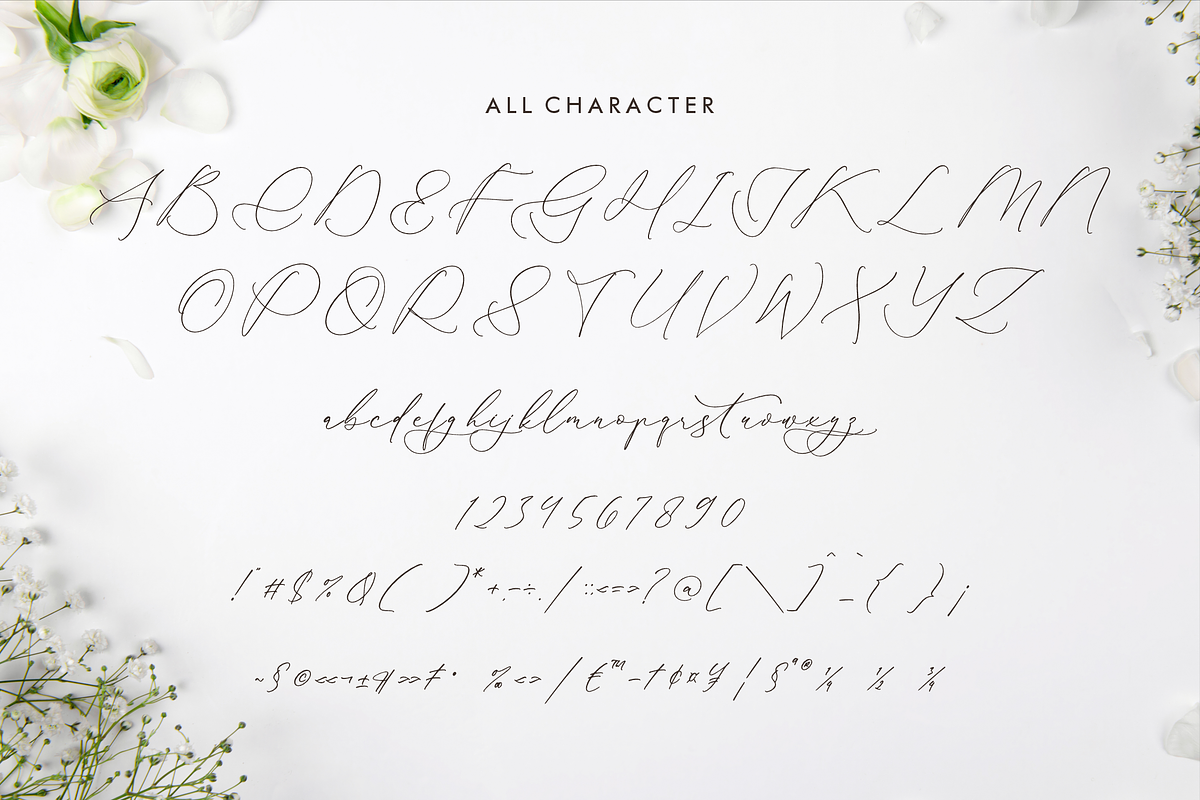 ALL CHARACTER
A B C D E F G H I J K L M N
O P Q R S T U V W X Y Z
abcdefghijklmnopqrstuvwxyz
1234567890
! " # $ % & ( ) * + , - ÷ . / : ; < = > ? @ [ \ ] ^ ` _ { } ¡
~ § © « ¬ ± ¶ » ‡ • ‰ < > / € ™ – † ¢ ¤ ¥ ¦ § ª ® ¼ ½ ¾